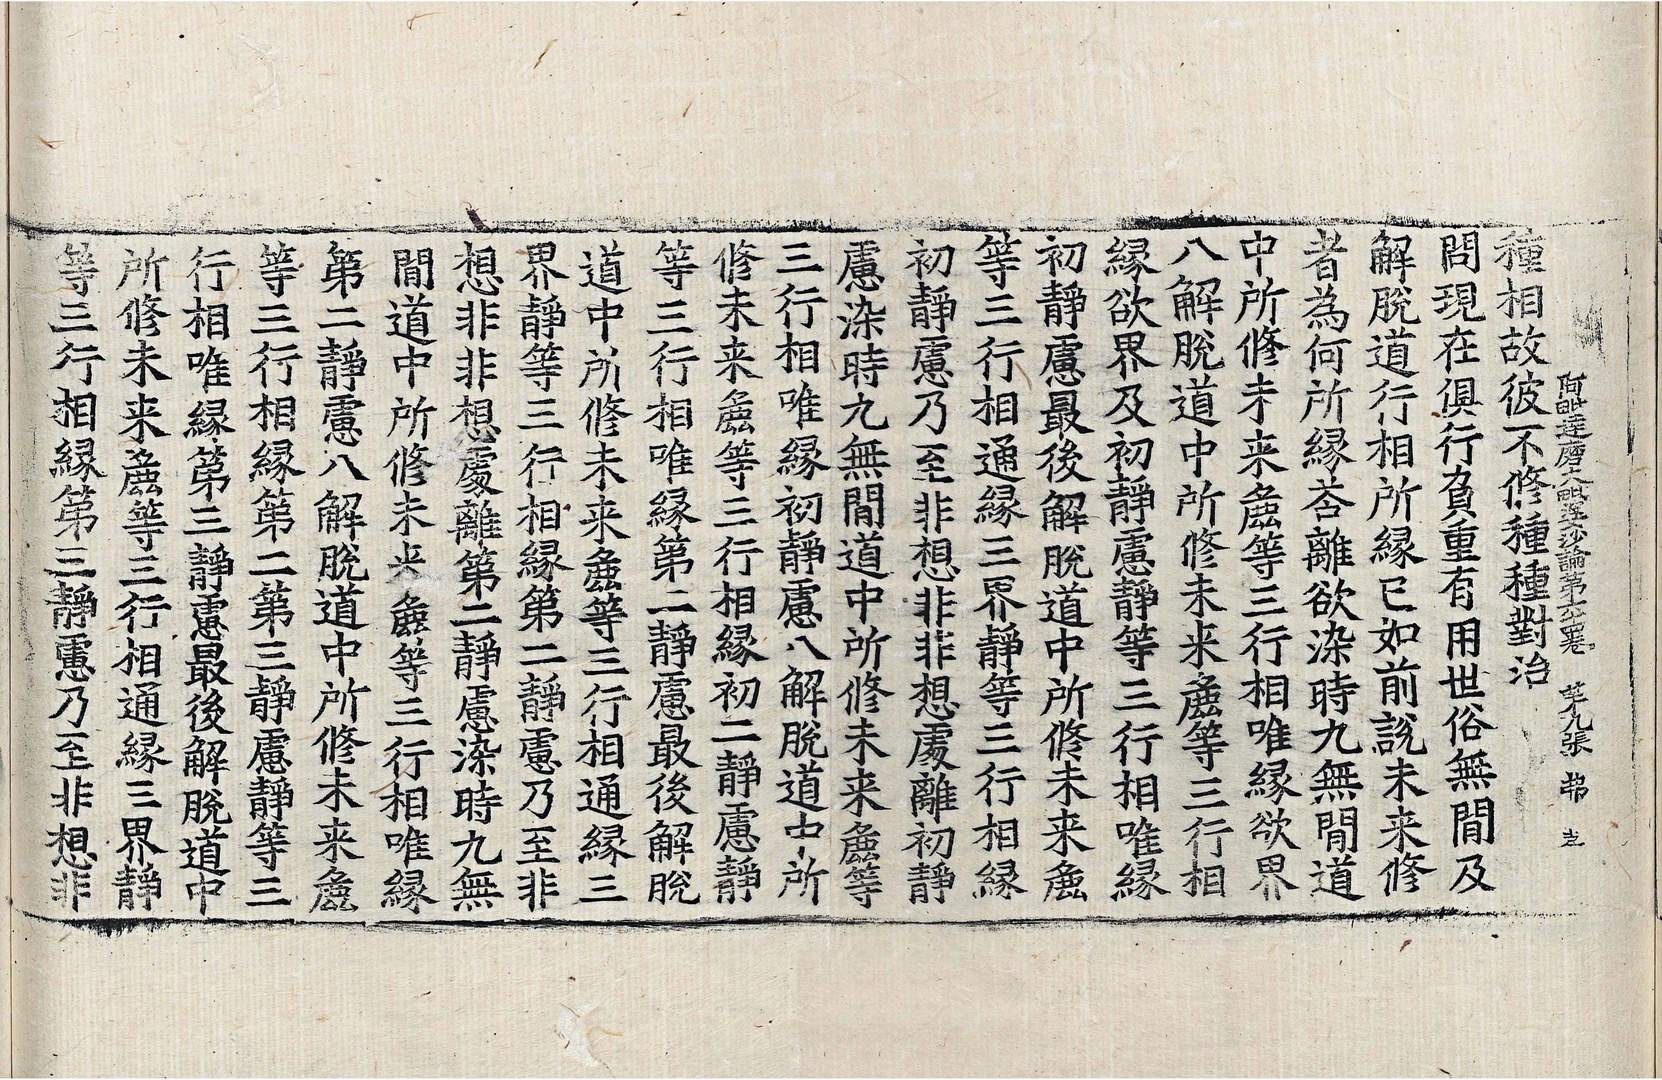 阿毗達磨大毗婆沙論第六 第九張
種相故彼不修種種對治
問現在俱行負重有用世俗無閒及
解脫道行相所緣已如前說未来修
者為何所緣荅離欲染時九無閒道
中所修未来麁等三行相唯緣欲界
八解脫道中所修未来麁等三行相
緣欲界及初靜慮靜等三行相唯緣
初靜慮最後解脫道中所修未来麁
等三行相通緣三界靜等三行相緣
初靜慮乃至非想非非想處離初靜
慮染時九無閒道中所修未来麁等
三行相唯緣初靜慮八解脫道中所
修未来麁等三行相緣初二靜慮靜
等三行相唯緣第二靜慮最後解脫
道中所修未来麁等三行相通緣三
界靜等三行相緣第二靜慮乃至非
想非非想處離第二靜慮染時九無
閒道中所修未来麁等三行相唯緣
第二靜慮八解脫道中所修未来麁
等三行相緣第二第三靜慮靜等三
行相唯緣第三靜慮最後解脫道中
所修未来麁等三行相通緣三界靜
等三行相緣第三靜慮乃至非想非